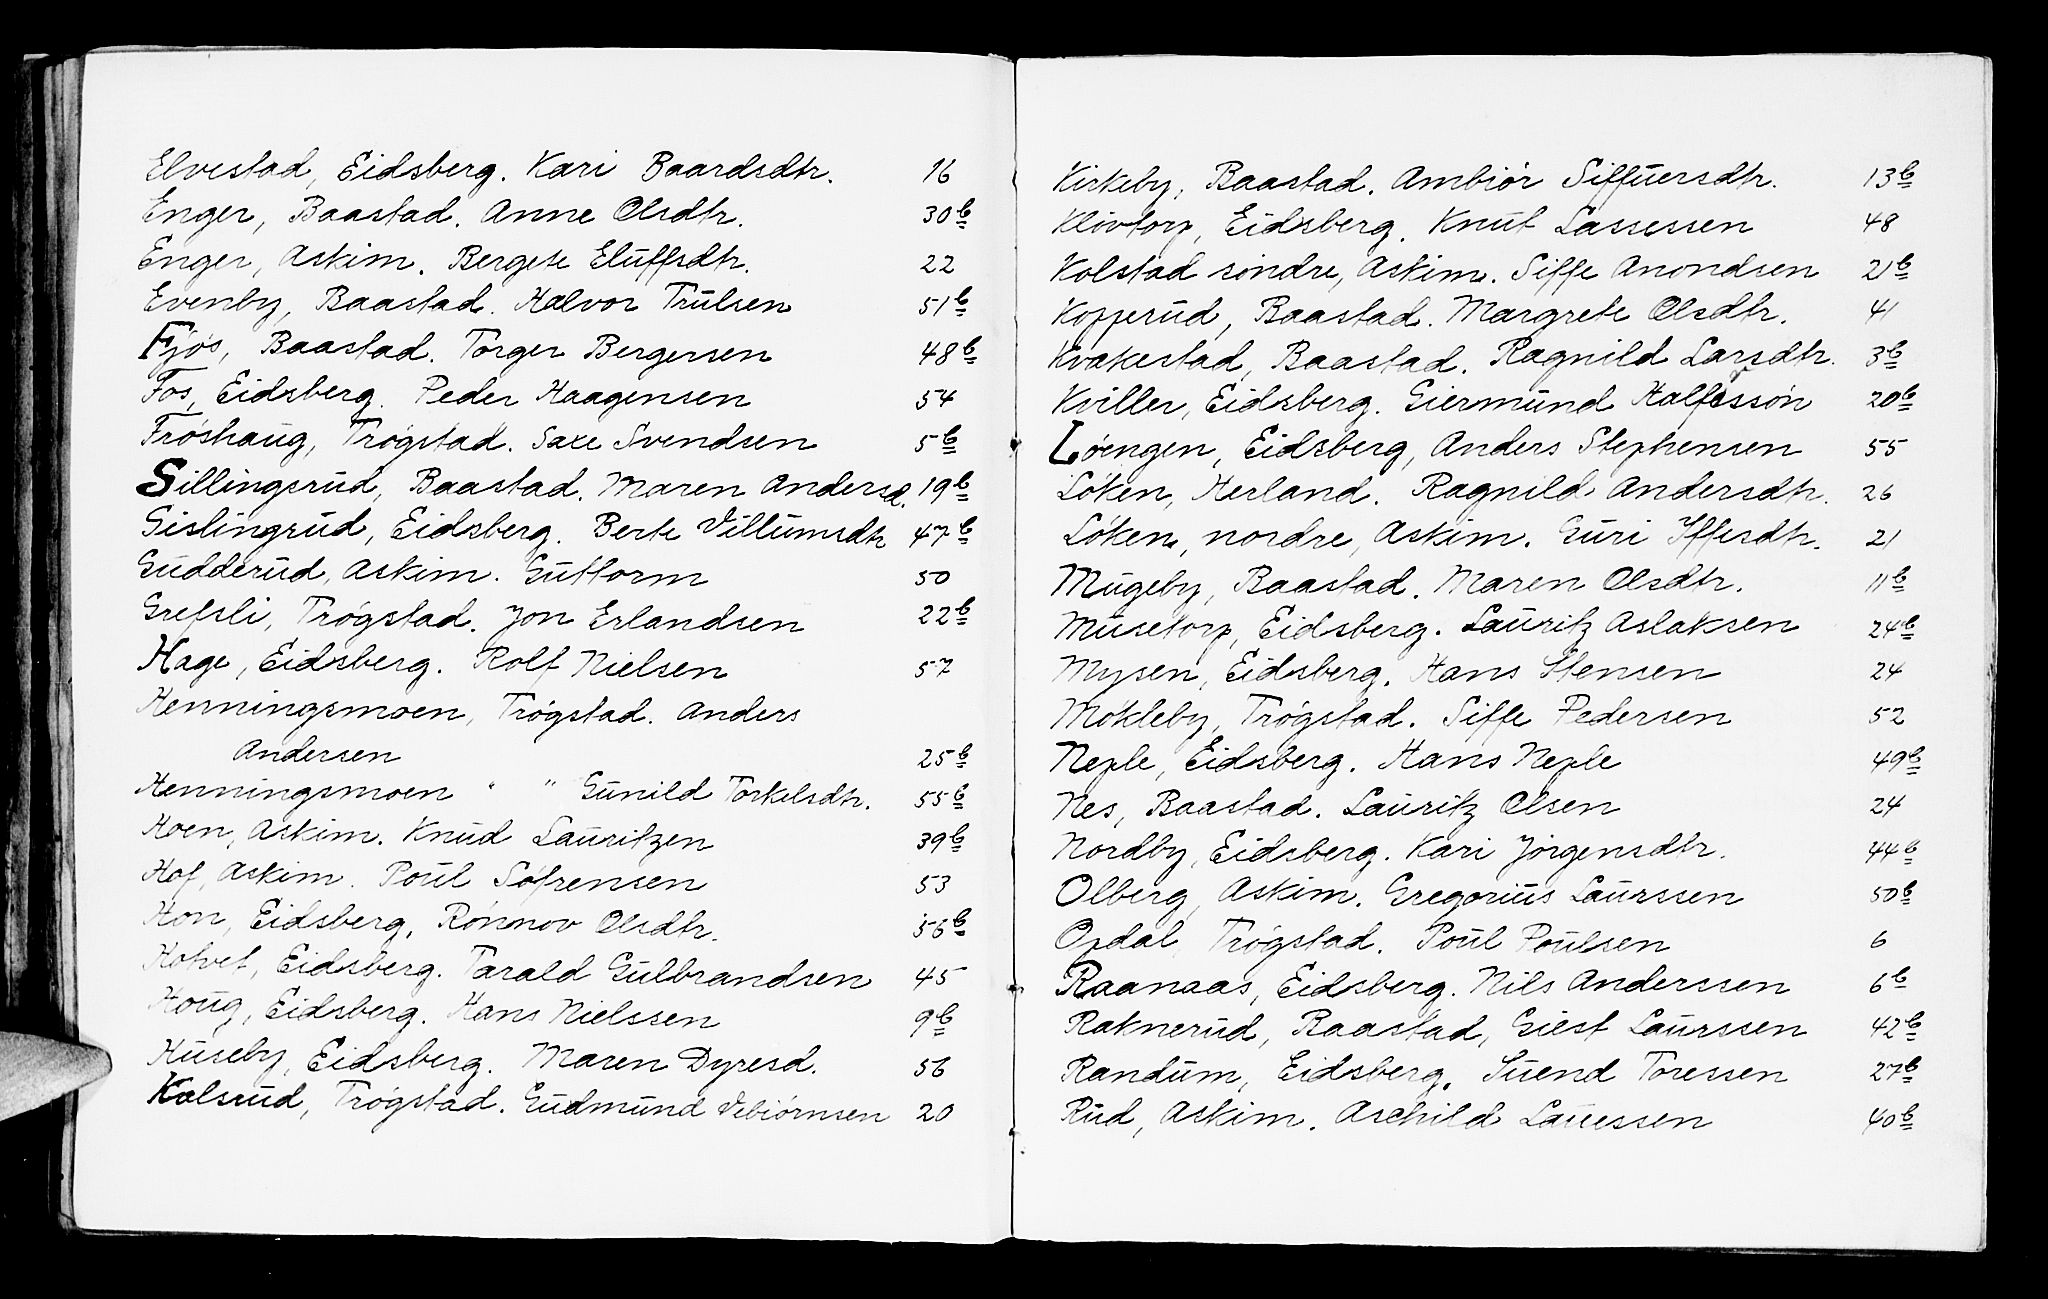 Elvestad, Eidsberg. Kari Baardsdtr. 16
Enger, Baastad. Anne Olsdtr. 30b
Enger, Askim. Bergete Eluffsdtr. 22
Evenby, Baastad. Halvor Trulsen 51b
Fjøs, Baastad. Torger Bergersen 48b
Fos, Eidsberg. Peder Haagensen 54
Frøshaug, Trøgstad. Saxe Svendsen 5b
Gillingsrud, Baastad. Maren Andersd. 19b
Gislingrud, Eidsberg. Berte Villumsdtr 47b
Gudderud, Askim. Guttorm 50
Grefsli, Trøgstad. Jon Erlandsen 22b
Hage, Eidsberg. Rolf Nielsen 57
Henningsmoen, Trøgstad. Anders
Andersen 25b
Henningsmoen " " Gunild Torkelsdtr. 55b
Hoen, Askim. Knud Lauritzen 39b
Hof, Askim. Poul Søfrensen 53
Hon, Eidsberg, Rønnov Olsdtr. 56b
Hotvet, Eidsberg. Tarald Gulbrandsen 45
Houg, Eidsberg. Hans Nielssen 9b
Huseby, Eidsberg. Maren Dyresd. 56
Kalsrud, Trøgstad. Gudmund Vebiørnsen 20
Kirkeby, Baastad. Ambiør Siffuersdtr. 13b
Kløvtorp, Eidsberg. Knut Lassessen 48
Kolstad søndre, Askim. Siffe Anondsen 21b
Kopperud, Baastad. Margrete Olsdtr. 41
Kvakestad, Baastad. Ragnild Larsdtr. 3b
Kviller, Eidsberg. Giermund Halfessøn 20b
Løengen, Eidsberg, Anders Stephensen 55
Løken, Herland. Ragnild Andersdtr. 26
Løken, nordre, Askim. Guri Iffersdtr. 21
Mugeby, Baastad. Maren Olsdtr. 11b
Musetorp, Eidsberg. Lauritz Aslaksen 24b
Mysen, Eidsberg. Hans Stensen 24
Møkleby, Trøgstad. Siffe Pedersen 52
Neple, Eidsberg. Hans Neple 49b
Nes, Baastad. Lauritz Olsen 24
Nordby, Eidsberg. Kari Jørgensdtr. 44b
Olberg, Askim. Gregorius Laurssen 50b
Opdal, Trøgstad. Poul Poulsen 6
Raanaas, Eidsberg. Nils Anderssen 6b
Raknerud, Baastad, Giest Laurssen 42b
Randum, Eidsberg. Suend Toressen 27b
Rud, Askim. Aschild Lauessen 40b